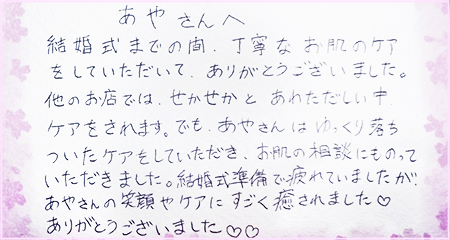 あやさんへ
結婚式までの間、丁寧なお肌のケア
をしていただいて、ありがとうございました。
他のお店では、せかせかとあわただしい中、
ケアをされます。でも、あやさんはゆっくり落ち
ついたケアをしていただき、お肌の相談にものって
いただきました。結婚式準備で疲れていましたが、
あやさんの笑顔やケアにすごく癒されました♡
ありがとうございました♡♡